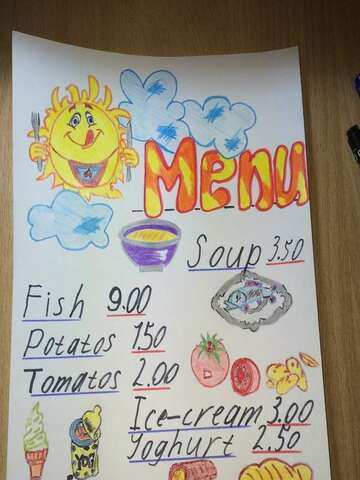 Menu
Soup 3.50
Fish 9.00
Potatos 1.50
Tomatos 2.00
Ice-cream 3.00
Yoghurt 2.50
YOG